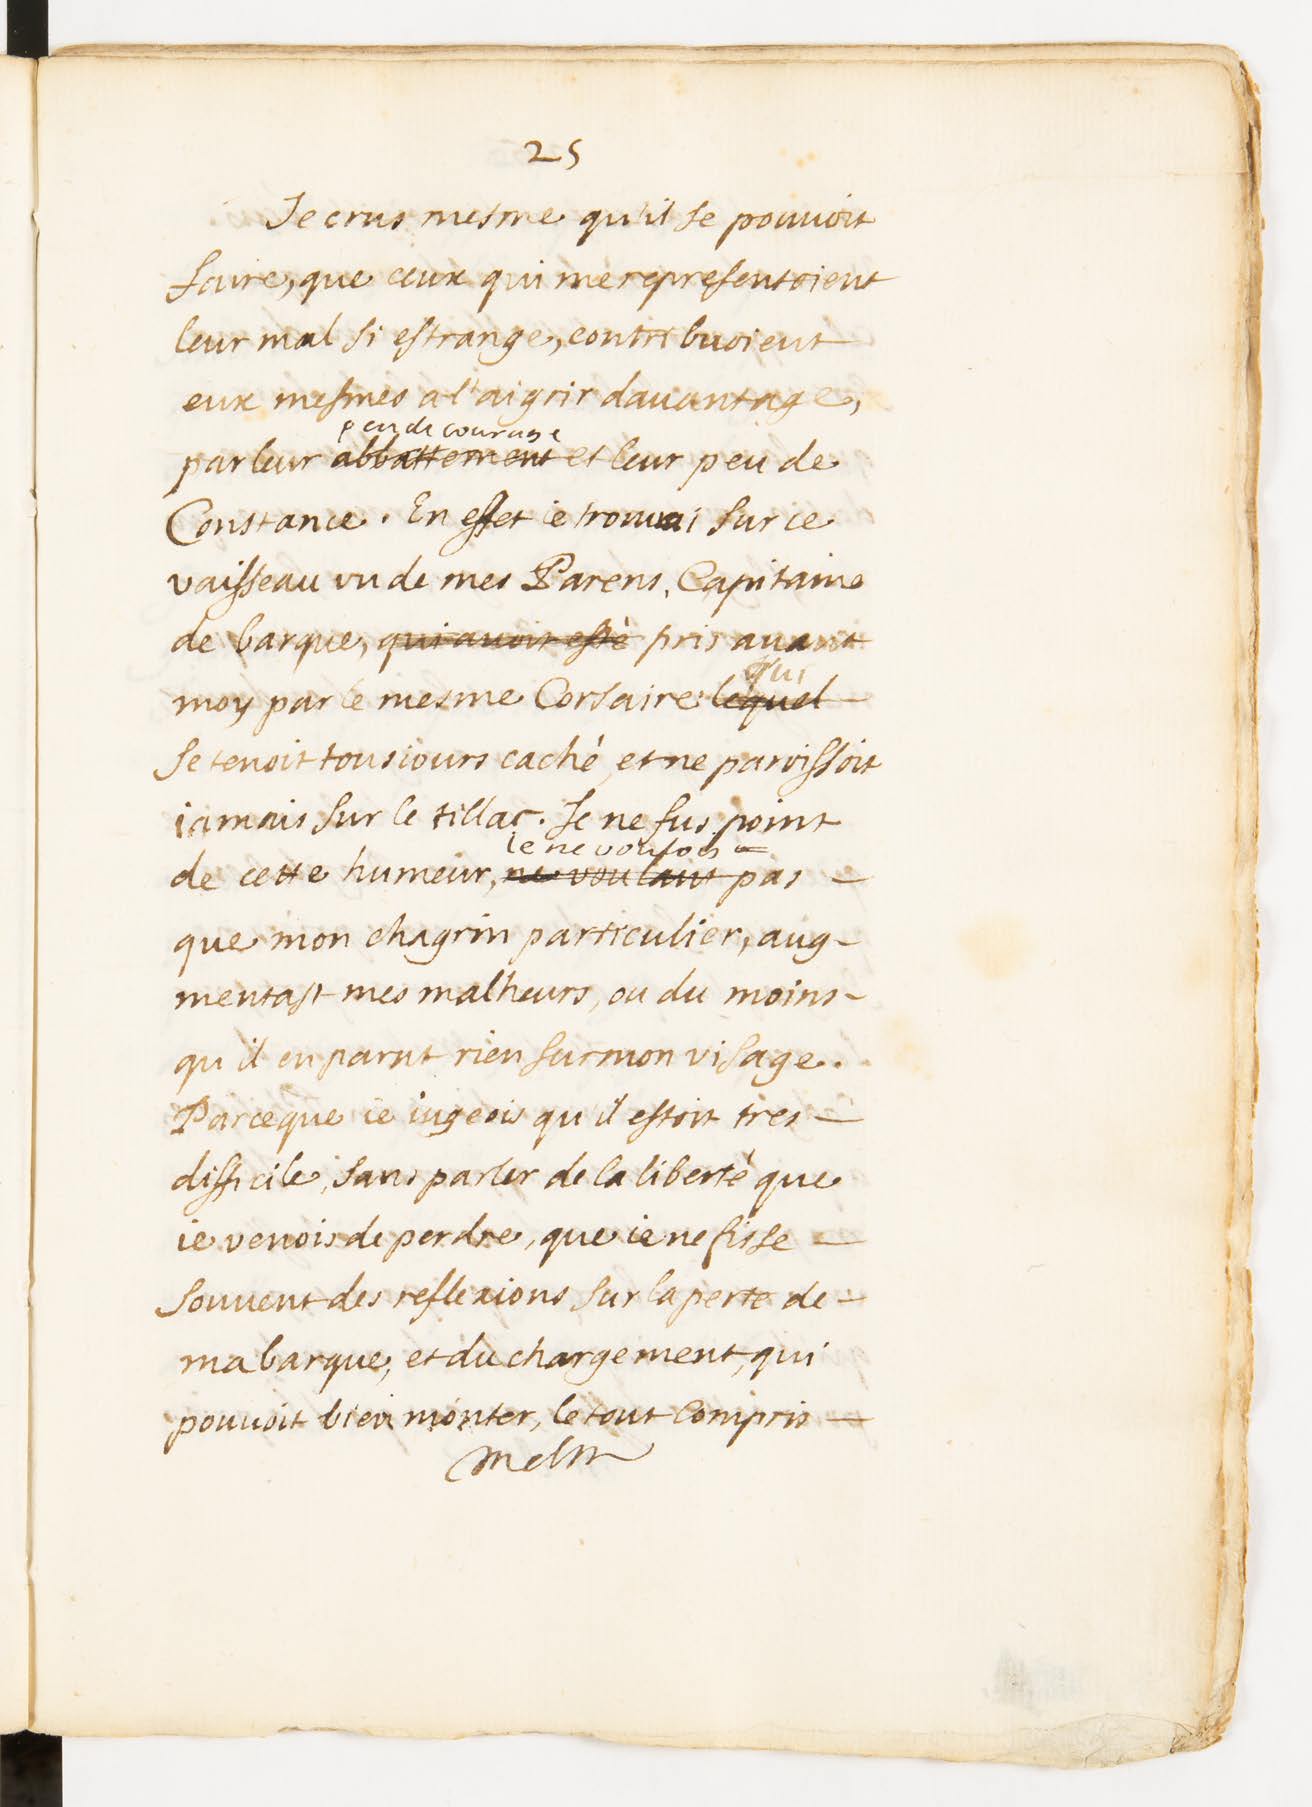 25
Je crus mesme qu'il se pouuoit
faire, que ceux qui me representoient
leur mal si estrange, contribuoient
eux mesmes a l'aigrir dauantage,
peu de courage
par leur abbattement et leur peu de
Constance. En effet ie trouuai sur ce
vaisseau vn de mes Parens, Capitaine
de barque, qui auoit esté pris auant
qui
moy par le mesme Corsaire lequel
se tenoit tousiours caché, et ne paroissoit
iamais sur le tillac. Je ne fus point
ie ne voulois
de cette humeur, ne voulant pas
que mon chagrin particulier, aug-
mentast mes malheurs, ou du moins
qu il en parut rien sur mon visage.
Parceque ie iugeois qu il estoit tres
difficile, sans parler de la liberté que
ie venois de perdre, que ie ne fisse
souuent des reflexions sur la perte de
ma barque, et du chargement, qui
pouuoit bien monter, le tout compris